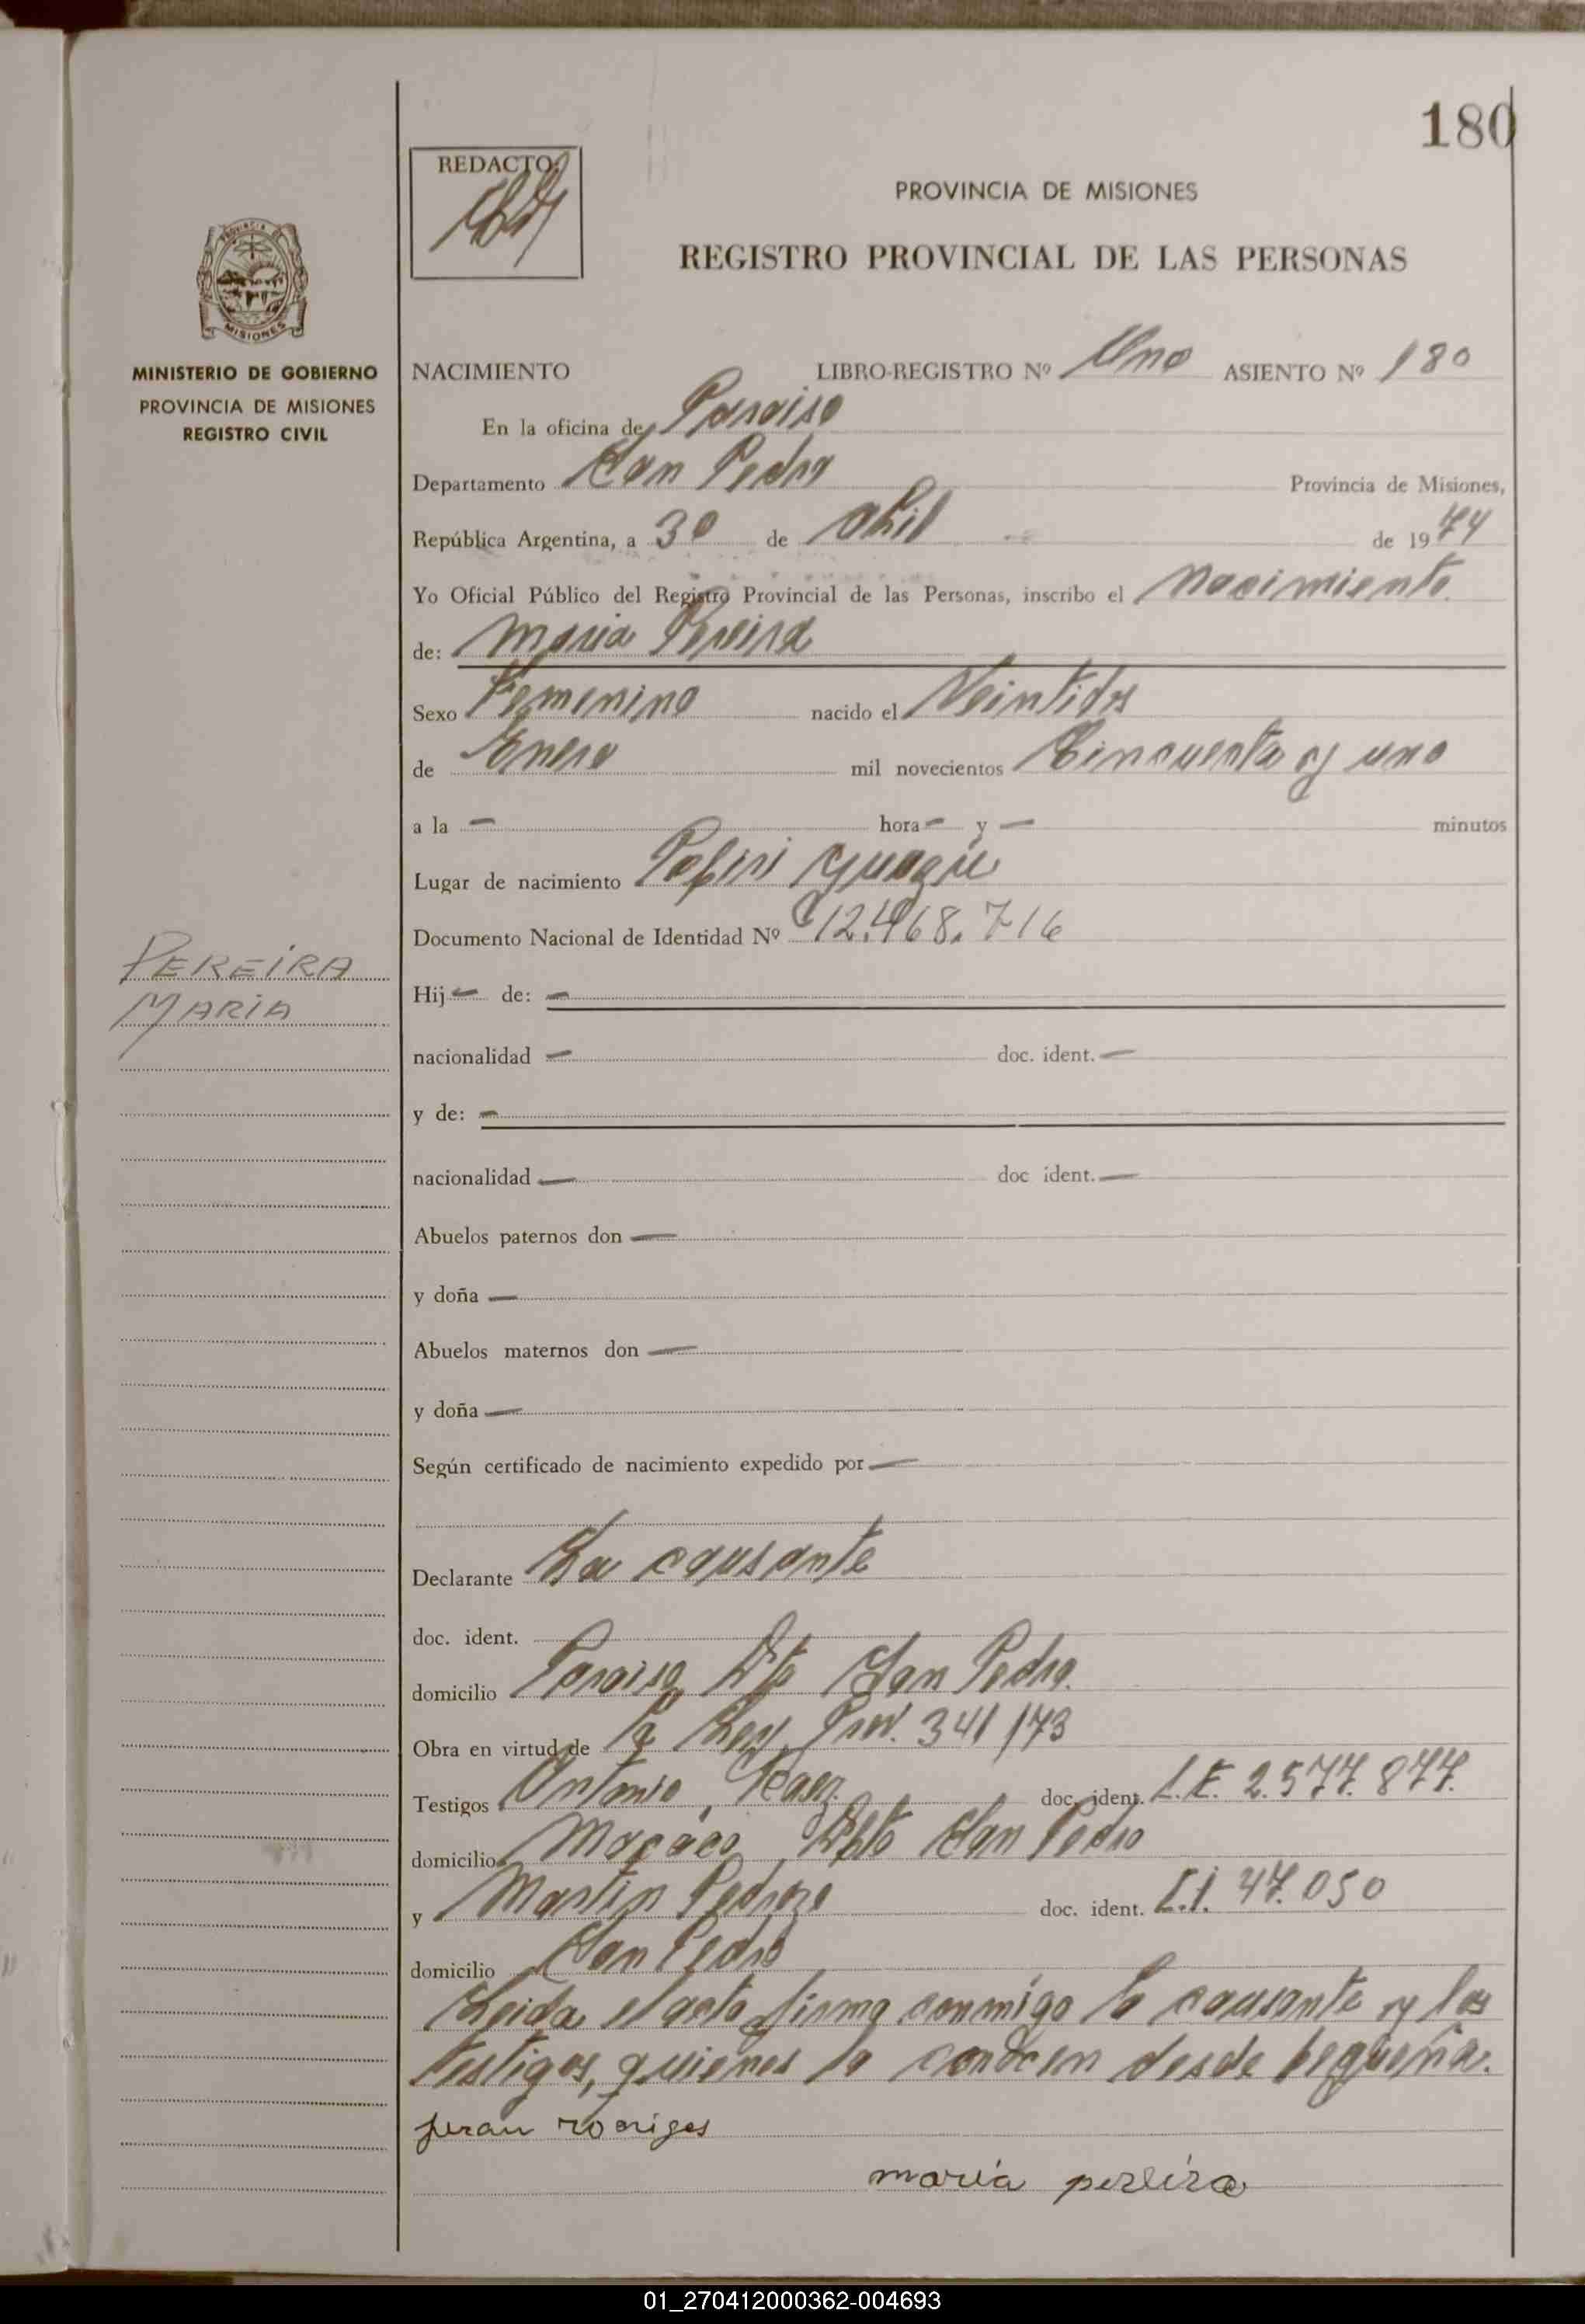 180
REDACTO
PROVINCIA DE MISIONES
REGISTRO PROVINCIAL DE LAS PERSONAS
PROVINCIA DE
MISIONES
MINISTERIO DE GOBIERNO
PROVINCIA DE MISIONES
REGISTRO CIVIL
NACIMIENTO LIBRO-REGISTRO Nº Uno ASIENTO Nº 180
En la oficina de Paraiso
Departamento San Pedro Provincia de Misiones,
República Argentina, a 30 de Abril de 1974
Yo Oficial Público del Registro Provincial de las Personas, inscribo el Nacimiento
de: Maria Pereira
Sexo Femenino nacido el Veintidos
de Enero mil novecientos Cincuenta y uno
a la — hora — y — minutos
Lugar de nacimiento Guazu
Documento Nacional de Identidad Nº 12.468.716
PEREIRA
MARIA
Hij — de: —
nacionalidad — doc. ident. —
y de: —
nacionalidad — doc ident. —
Abuelos paternos don —
y doña —
Abuelos maternos don —
y doña —
Según certificado de nacimiento expedido por —
Declarante La causante
doc. ident.
domicilio Paraiso Dto San Pedro.
Obra en virtud de La Ley Prov. 341/73
Testigos Antonio doc. ident. L.E. 2.577.877.
domicilio Macaco Dpto San Pedro
y Martin Pedrozo doc. ident. C.I. 47.050
domicilio San Pedro
Leida el acta firma conmigo la causante y los
testigos, quienes la conocen desde pequeña.
juran rodriges
maria pereira
01_270412000362-004693